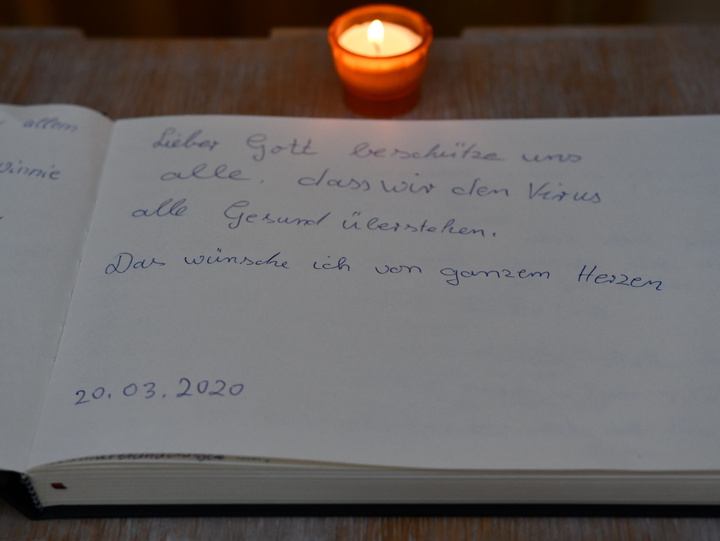 allem
winnie
Lieber Gott beschütze uns
alle, dass wir den Virus
alle Gesund überstehen.
Das wünsche ich von ganzem Herzen
20.03.2020